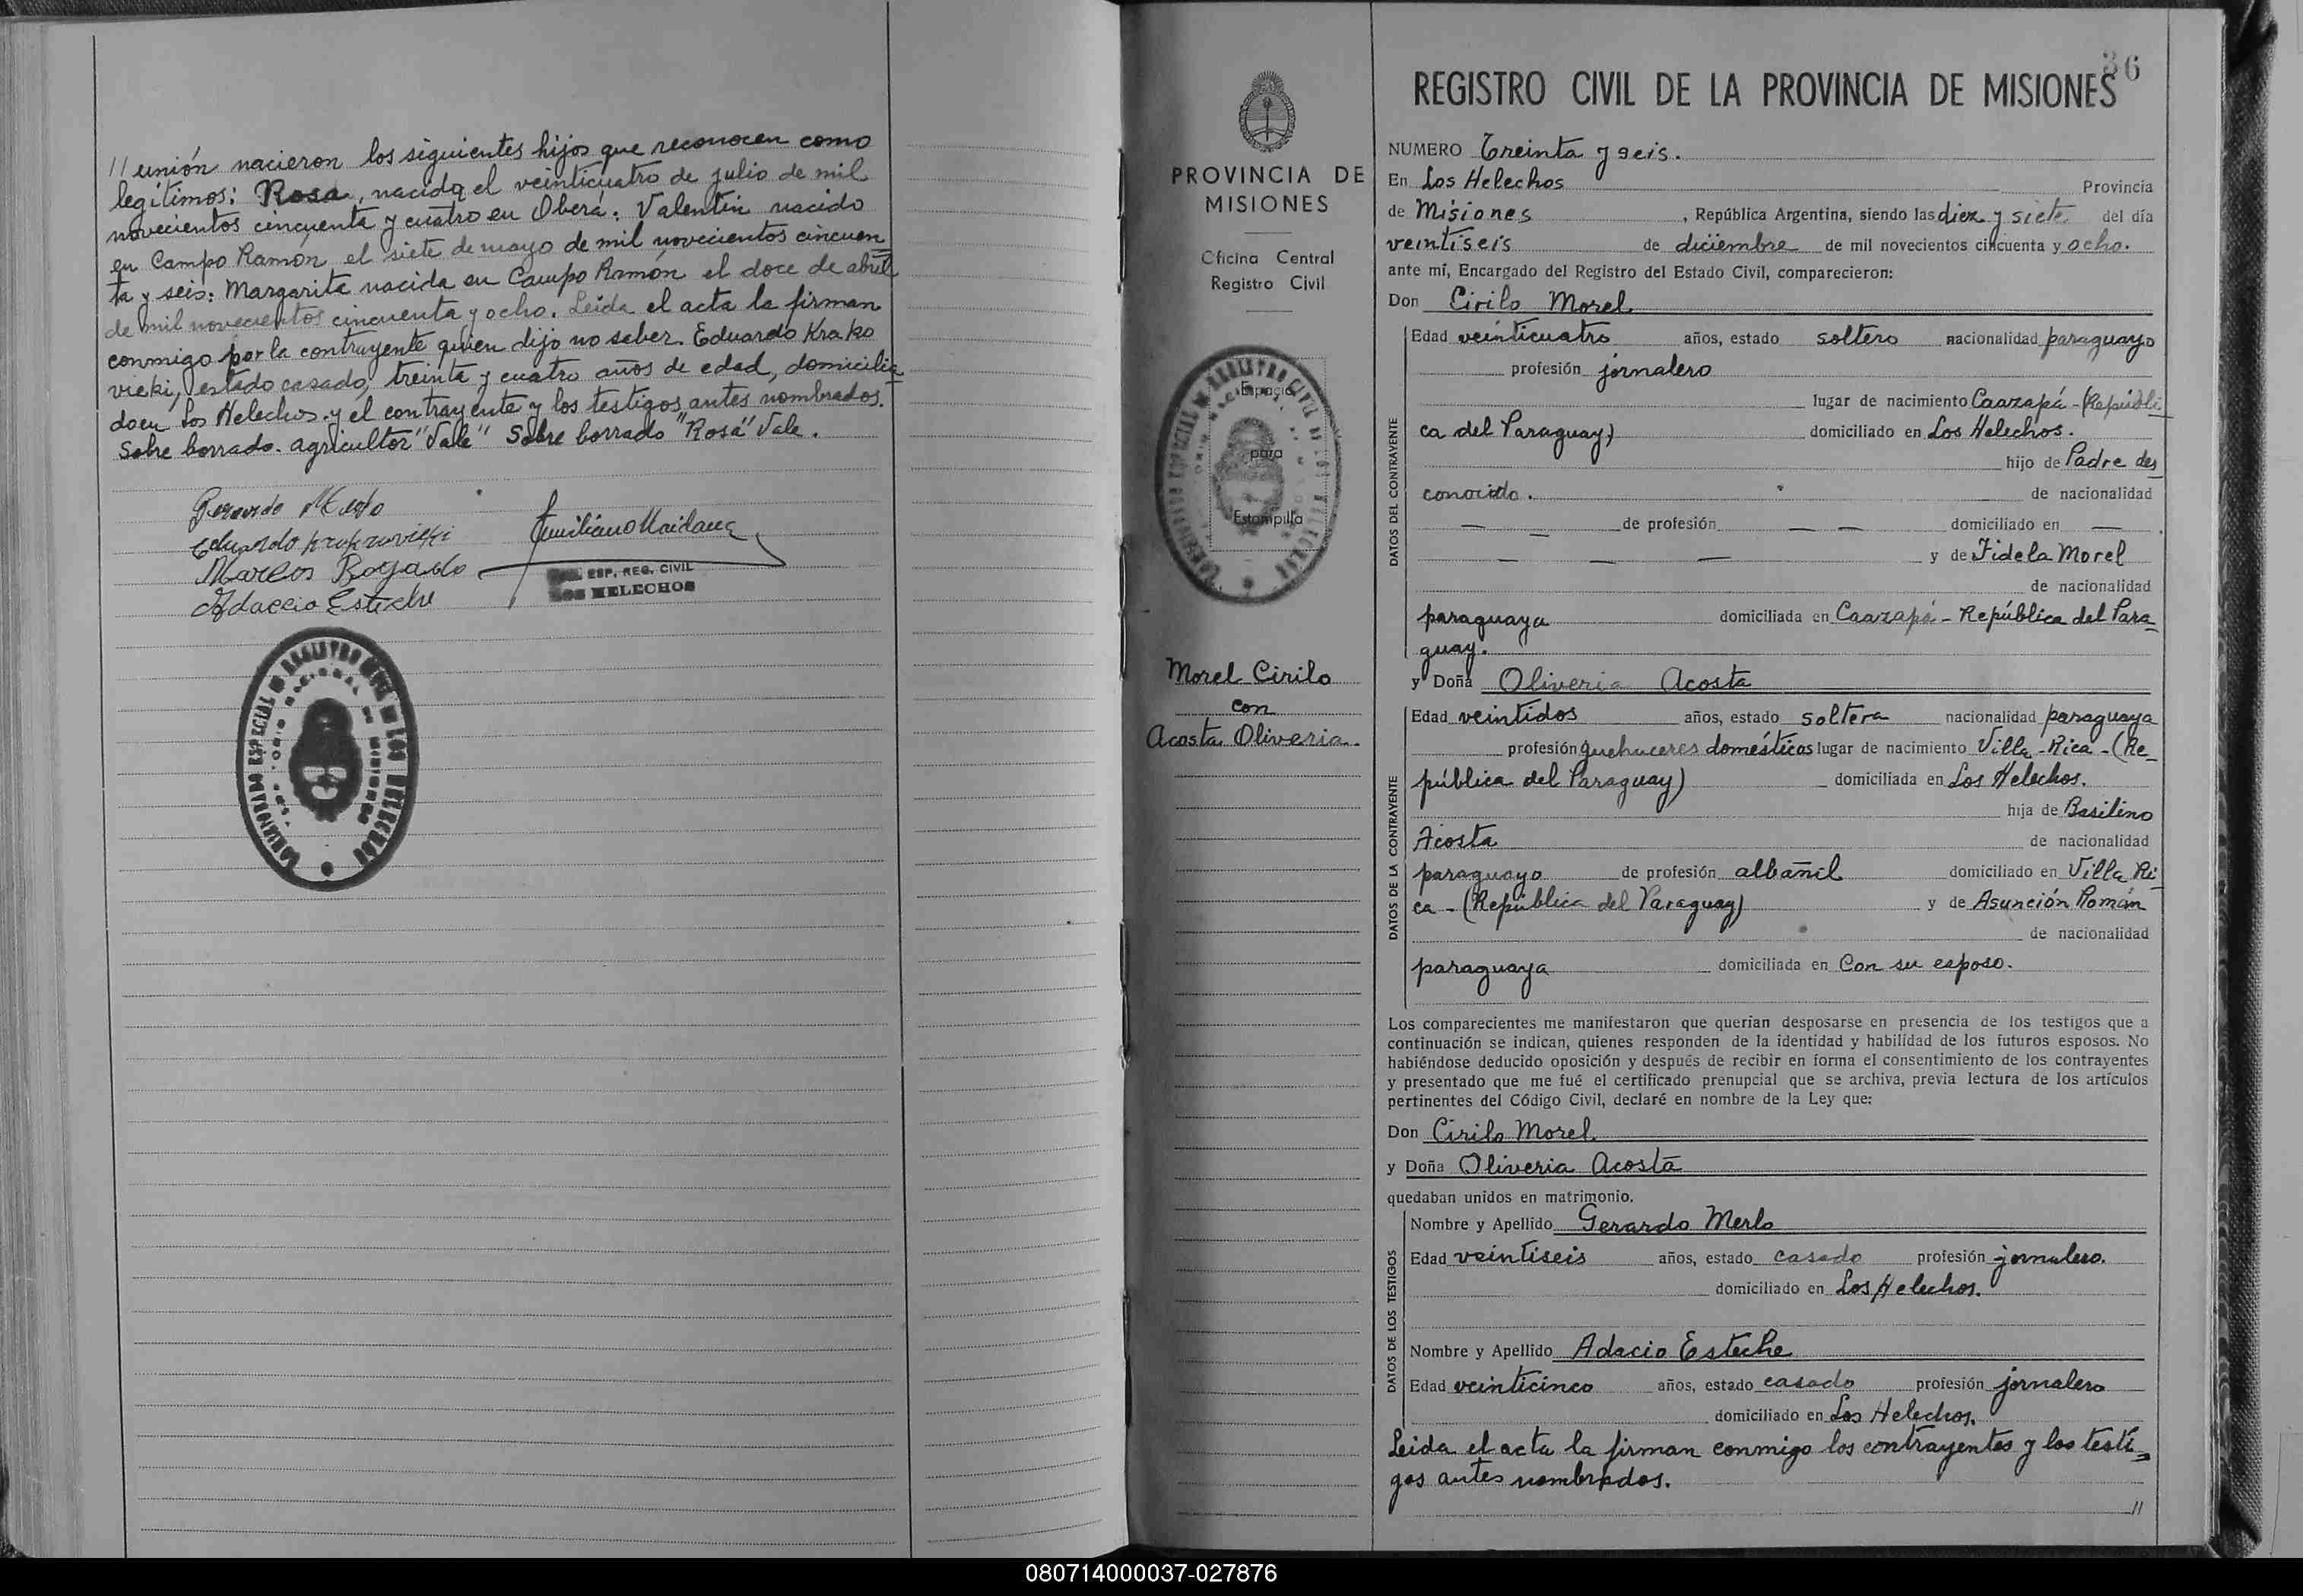 // unión nacieron los siguientes hijos que reconocen como
legítimos: Rosa, nacida el veinticuatro de julio de mil
novecientos cincuenta y cuatro en Oberá: Valentín nacido
en Campo Ramón el siete de mayo de mil novecientos cincuen
ta y seis: Margarita nacida en Campo Ramón el doce de abril
de mil novecientos cincuenta y ocho. Leída el acta la firman
conmigo por la contrayente quien dijo no saber. Eduardo Krako
vieki, estado casado, treinta y cuatro años de edad, domicilia
do en Los Helechos y el contrayente y los testigos antes nombrados.
Sobre borrado. agricultor "Vale" Sobre borrado "Rosa" Vale.
Marcos Bogado
Adaccio Esteche
ESP. REG. CIVIL
LOS HELECHOS
PROVINCIA DE
MISIONES
Oficina Central
Registro Civil
Espacio
para
Estampilla
Morel Cirilo
con
Acosta Oliveria.
36
REGISTRO CIVIL DE LA PROVINCIA DE MISIONES
NUMERO Treinta y seis.
En Los Helechos Provincia
de Misiones, República Argentina, siendo las diez y siete del día
veintiseis de diciembre de mil novecientos cincuenta y ocho.
ante mí, Encargado del Registro del Estado Civil, comparecieron:
Don Cirilo Morel
DATOS DEL CONTRAYENTE
Edad veinticuatro años, estado soltero nacionalidad paraguayo
profesión jornalero
lugar de nacimiento Caazapá - (Repúbli
ca del Paraguay) domiciliado en Los Helechos.
hijo de Padre des
conocido. de nacionalidad
— — de profesión — — domiciliado en —
— — — y de Fidela Morel
de nacionalidad
paraguaya domiciliada en Caazapá - República del Para
guay.
y Doña Oliveria Acosta
DATOS DE LA CONTRAYENTE
Edad veintidos años, estado soltera nacionalidad paraguaya
profesión quehaceres domésticos lugar de nacimiento Villa-Rica - (Re
pública del Paraguay) domiciliada en Los Helechos.
hija de Basilino
Acosta de nacionalidad
paraguayo de profesión albañil domiciliado en Villa Ri
ca - (República del Paraguay) y de Asunción Román
de nacionalidad
paraguaya domiciliada en Con su esposo.
Los comparecientes me manifestaron que querían desposarse en presencia de los testigos que a
continuación se indican, quienes responden de la identidad y habilidad de los futuros esposos. No
habiéndose deducido oposición y después de recibir en forma el consentimiento de los contrayentes
y presentado que me fué el certificado prenupcial que se archiva, previa lectura de los artículos
pertinentes del Código Civil, declaré en nombre de la Ley que:
Don Cirilo Morel
y Doña Oliveria Acosta
quedaban unidos en matrimonio.
DATOS DE LOS TESTIGOS
Nombre y Apellido Gerardo Merlo
Edad veintiseis años, estado casado profesión jornalero.
domiciliado en Los Helechos.
Nombre y Apellido Adacio Esteche
Edad veinticinco años, estado casado profesión jornalero
domiciliado en Los Helechos.
Leída el acta la firman conmigo los contrayentes y los testi
gos antes nombrados.
//
080714000037-027876